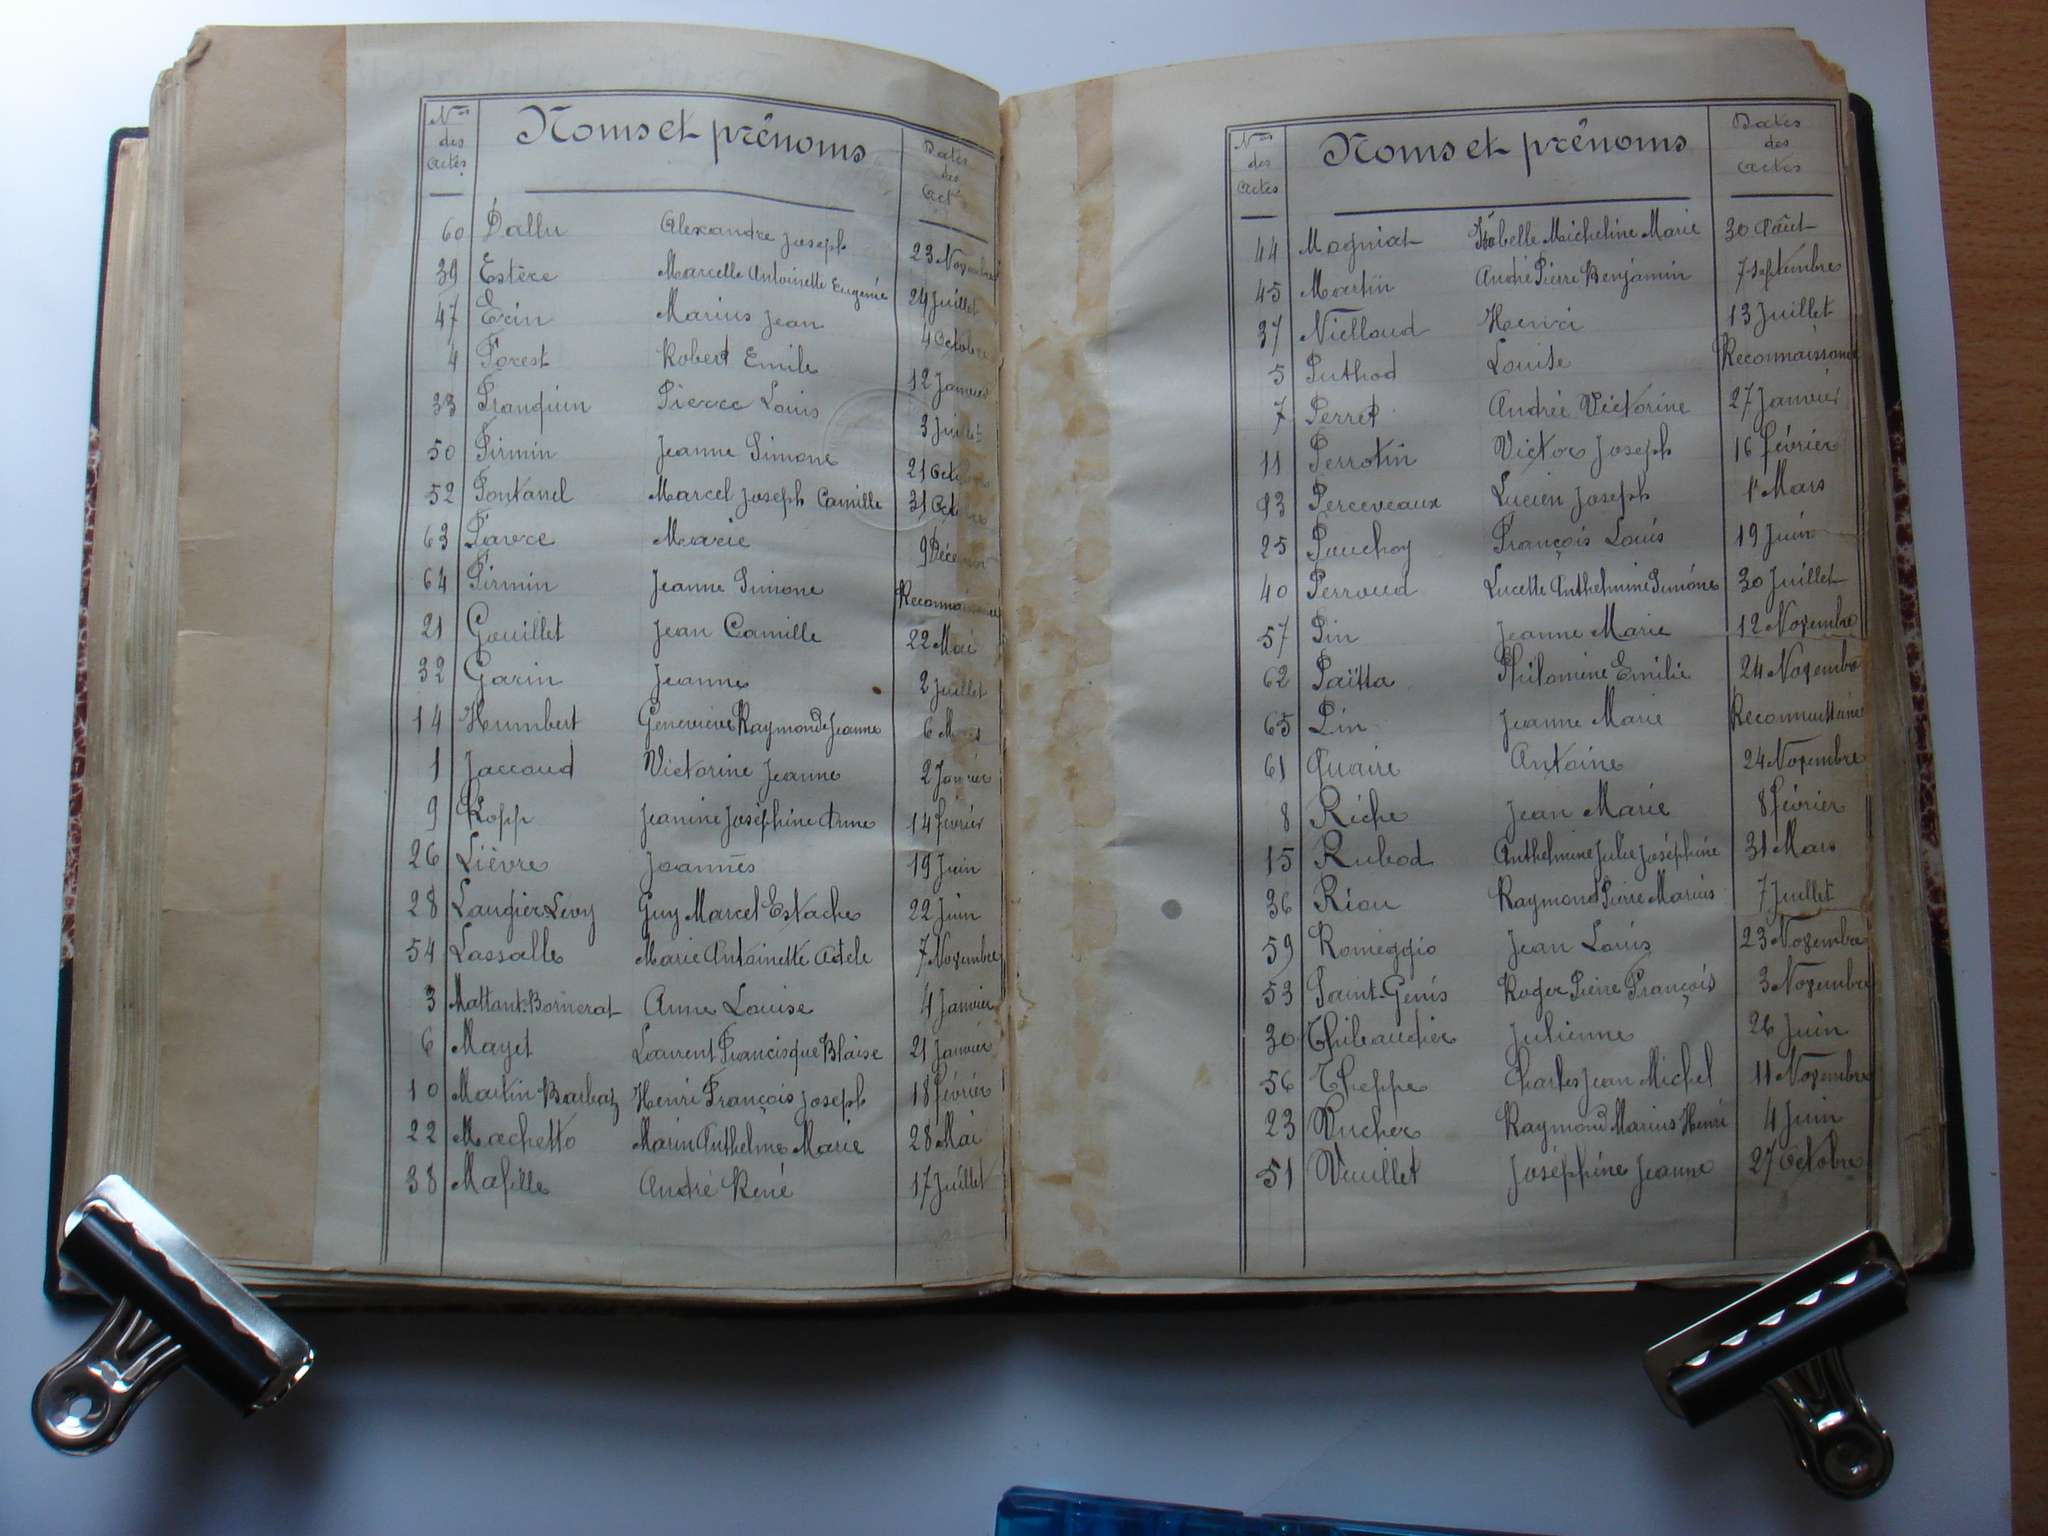 Nos des actes Noms et prénoms Dates des Act
60 Dallu Alexandre Joseph 23 Novembre
39 Estère Marcelle Antoinette Eugenie 24 Juillet
47 Erin Marius Jean 4 Octobre
4 Forest Robert Emile 12 Janvier
33 Franquin Pierre Louis 3 Juillet
50 Firmin Jeanne Simone 21 Octobre
52 Fontanel Marcel Joseph Camille 31 Octobre
63 Favre Marie 9 Décembre
64 Firmin Jeanne Simone Reconnaissance
21 Gouillet Jean Camille 22 Mai
32 Garin Jeanne 2 Juillet
14 Humbert Geneviève Raymonde Jeanne 6 Mars
1 Jaccoud Victorine Jeanne 2 Janvier
9 Kopp Jeanine Joséphine Anne 14 février
26 Lièvre Joannès 19 Juin
28 Laugier Levy Guy Marcel Estache 22 Juin
54 Lassalle Marie Antoinette Adele 7 Novembre
3 Mattant-Bornerat Anne Louise 4 Janvier
6 Mayet Laurent Francisque Blaise 21 Janvier
10 Martin Barbaz Henri François Joseph 18 février
22 Machetto Marin Anthelme Marie 28 Mai
38 Mafille André René 17 Juillet
Nos des actes Noms et prénoms Dates des actes
44 Magniat Isabelle Micheline Marie 30 Août
45 Martin André Pierre Benjamin 7 Septembre
37 Nielloud Henri 13 Juillet
5 Puthod Louise Reconnaissance
7 Perret André Victorine 27 Janvier
11 Perrotin Victor Joseph 16 février
13 Perceveaux Lucien Joseph 1r Mars
25 Pauchoy François Louis 19 Juin
40 Perroud Lucette Anthelmine Simone 30 Juillet
57 Pin Jeanne Marie 12 Novembre
62 Païtta Philomène Emilie 24 Novembre
65 Pin Jeanne Marie Reconnaissance
61 Quaire Antoine 24 Novembre
8 Riche Jean Marie 8 février
15 Rubod Anthelmine Julie Joséphine 31 Mars
36 Riou Raymond Pierre Marius 7 Juillet
59 Romeggio Jean Louis 23 Novembre
53 Saint-Genis Roger Pierre François 3 Novembre
30 Thibaudier Julienne 26 Juin
56 Theppe Charles Jean Michel 11 Novembre
23 Vucher Raymond Marius Henri 4 Juin
51 Vuillet Joséphine Jeanne 27 Octobre